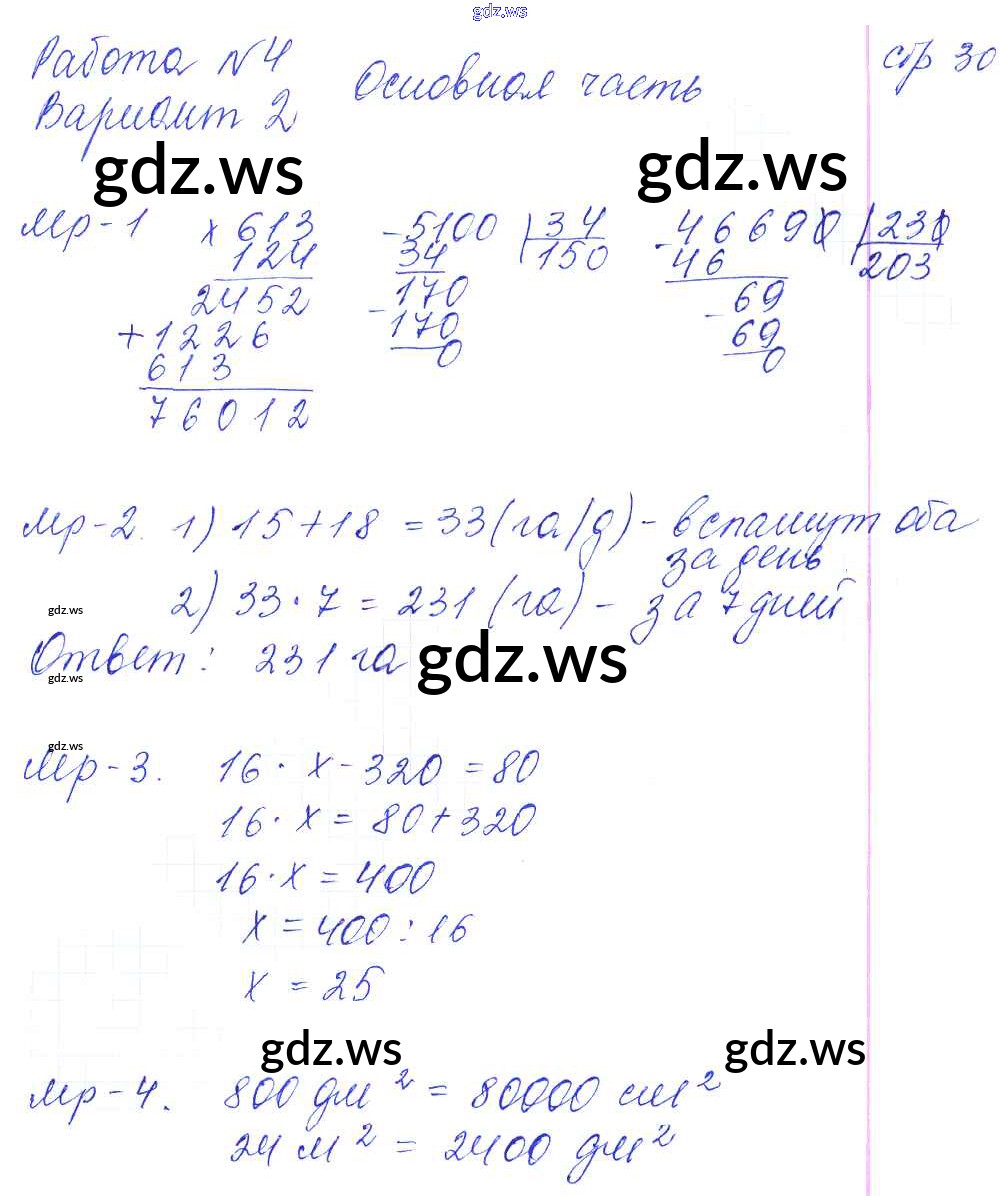 gdz.ws
Работа №4 Основная часть стр 30
Вариант 2
gdz.ws gdz.ws
мр-1
× 613
124
2452
+ 1226
613
76012
- 5100 | 34
34 150
- 170
170
0
- 46690 | 230
46 203
- 69
69
0
мр-2. 1) 15 + 18 = 33 (га/д) - вспашут оба
за день.
gdz.ws 2) 33 · 7 = 231 (га) - за 7 дней
Ответ: 231 га gdz.ws
gdz.ws
gdz.ws
мр-3. 16 · x - 320 = 80
16 · x = 80 + 320
16 · x = 400
x = 400 : 16
x = 25
gdz.ws gdz.ws
мр-4. 800 дм² = 80000 см²
24 м² = 2400 дм²